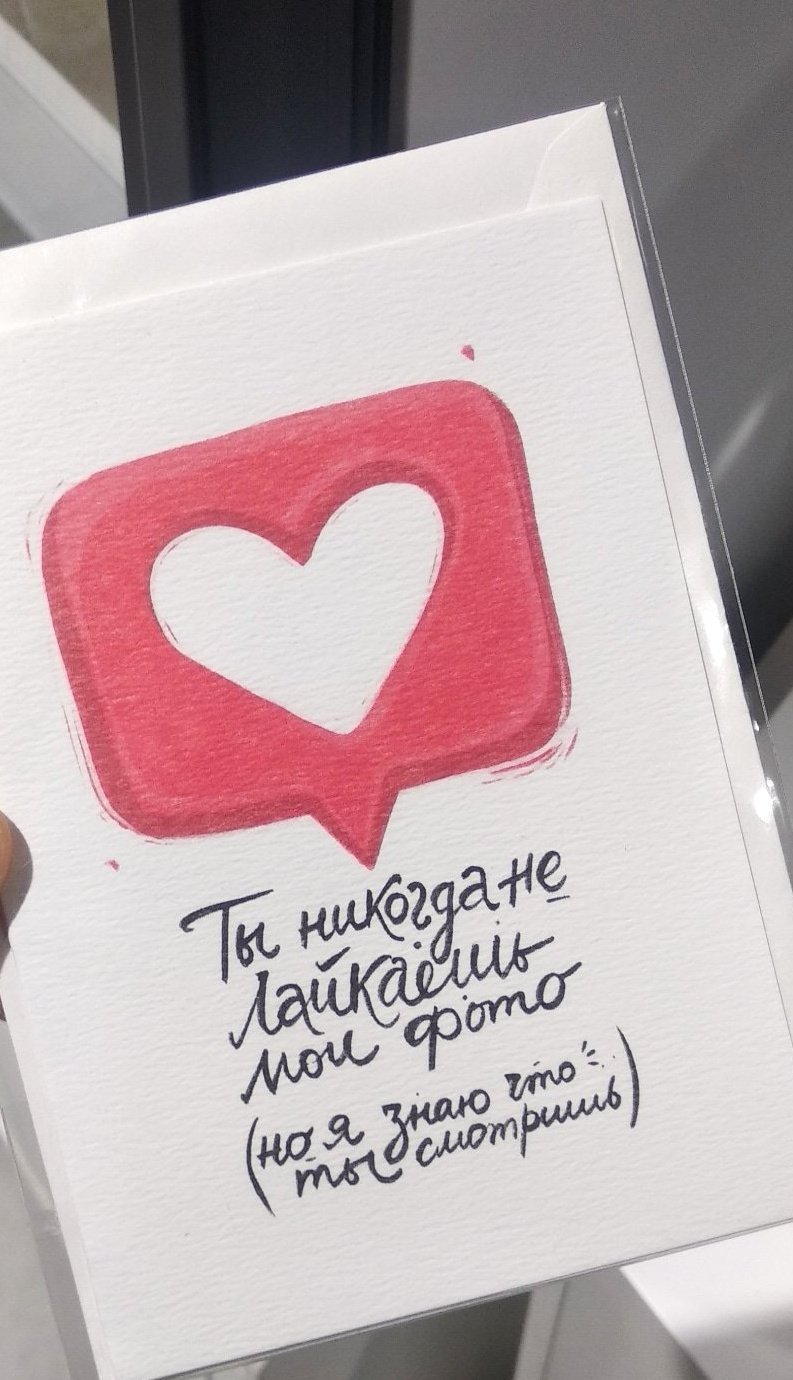 Ты никогда не
лайкаешь
мои фото
(но я знаю что
ты смотришь)